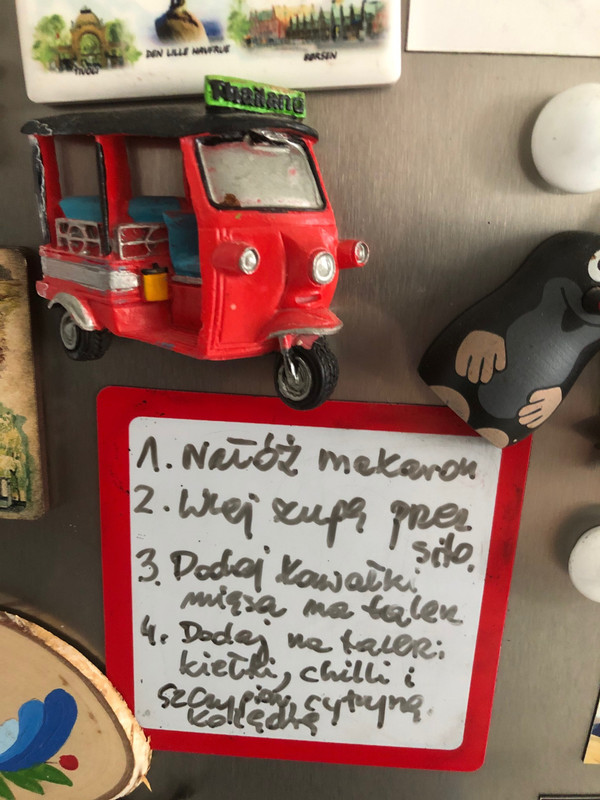 TIVOLI
DEN LILLE HAVFRUE
BØRSEN
Thailand
1. Nałóż makaron
2. Wlej zupę przez
sito.
3. Dodaj kawałki
mięsa na talerz
4. Dodaj na talerz:
kiełki, chilli i
szczypior, cytrynę
kolędrę